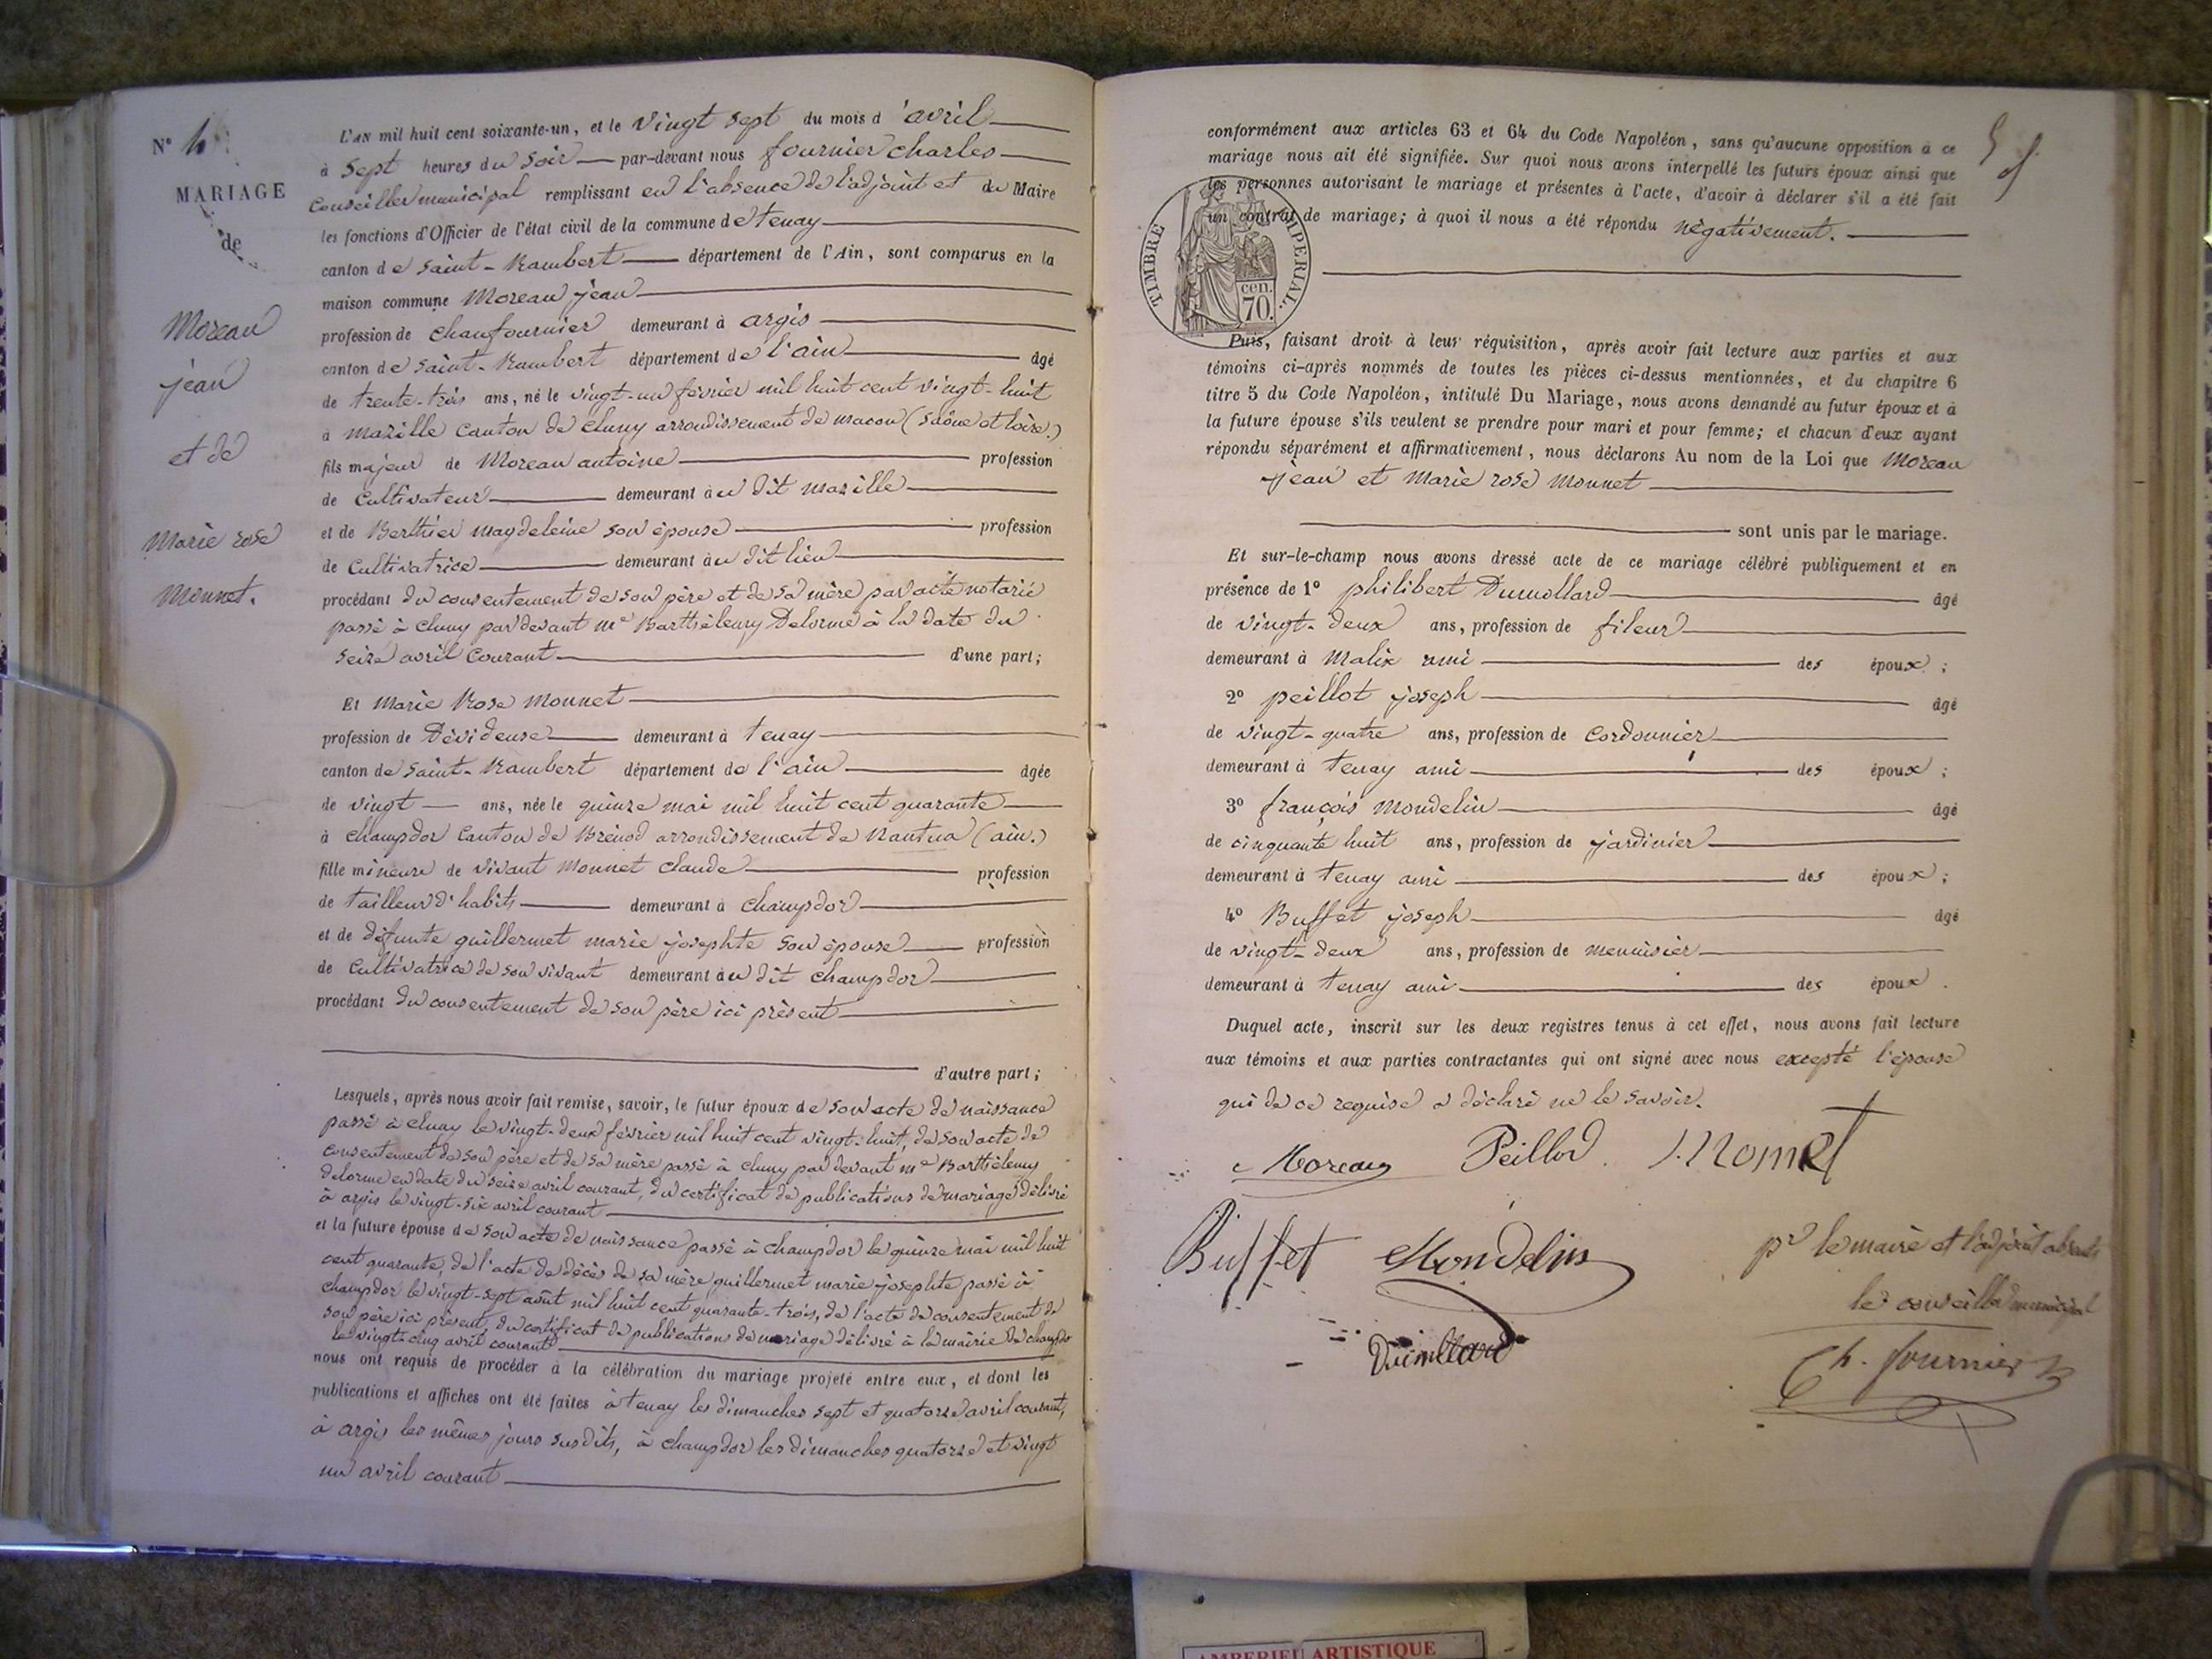 N° 4
MARIAGE
de
Moreau
jean
et de
Marie rose
Monnet.
L'AN mil huit cent soixante-un, et le vingt sept du mois d'avril
à sept heures du soir par-devant nous fournier charles
Conseiller municipal remplissant en l'absence de l'adjoint et du Maire
les fonctions d'Officier de l'état civil de la commune de tenay
canton de saint-Rambert département de l'Ain, sont comparus en la
maison commune Moreau jean
profession de chaufournier demeurant à argis
canton de saint-Rambert département de l'ain âgé
de trente-trois ans, né le vingt-un février mil huit cent vingt-huit
à mazille canton de cluny arrondissement de macon (saône et loire.)
fils majeur de Moreau antoine profession
de cultivateur demeurant au dit mazille
et de Berthier magdeleine son épouse profession
de cultivatrice demeurant au dit lieu
procédant du consentement de son père et de sa mère par acte notarié
passé à cluny par devant me Barthélemy Delorme à la date du
seize avril courant d'une part;
Et Marie Rose Monnet
profession de Dévideuse demeurant à tenay
canton de saint-Rambert département de l'ain âgée
de vingt ans, née le quinze mai mil huit cent quarante
à champdor canton de Brénod arrondissement de Nantua (ain.)
fille mineure de vivant Monnet claude profession
de tailleur d'habits demeurant à champdor
et de défunte guillermet marie josephte son épouse profession
de cultivatrice de son vivant demeurant au dit champdor
procédant du consentement de son père ici présent
d'autre part;
Lesquels, après nous avoir fait remise, savoir, le futur époux de son acte de naissance
passé à cluny le vingt-deux février mil huit cent vingt-huit, de son acte de
consentement de son père et de sa mère passé à cluny par devant me Barthélemy
delorme en date du seize avril courant, du certificat de publications de mariage délivré
à argis le vingt-six avril courant
et la future épouse de son acte de naissance passé à champdor le quinze mai mil huit
cent quarante, de l'acte de décès de sa mère guillermet marie josephte passé à
champdor le vingt-sept août mil huit cent quarante-trois, de l'acte de consentement de
son père ici présent, du certificat de publications de mariage délivré à la mairie de champdor
le vingt-cinq avril courant
nous ont requis de procéder à la célébration du mariage projeté entre eux, et dont les
publications et affiches ont été faites à tenay les dimanches sept et quatorze avril courant,
à argis les mêmes jours susdits, à champdor les dimanches quatorze et vingt
un avril courant
conformément aux articles 63 et 64 du Code Napoléon, sans qu'aucune opposition à ce
mariage nous ait été signifiée. Sur quoi nous avons interpellé les futurs époux ainsi que
les personnes autorisant le mariage et présentes à l'acte, d'avoir à déclarer s'il a été fait
un contrat de mariage; à quoi il nous a été répondu négativement.
TIMBRE IMPERIAL.
cen.
70.
Puis, faisant droit à leur réquisition, après avoir fait lecture aux parties et aux
témoins ci-après nommés de toutes les pièces ci-dessus mentionnées, et du chapitre 6
titre 5 du Code Napoléon, intitulé Du Mariage, nous avons demandé au futur époux et à
la future épouse s'ils veulent se prendre pour mari et pour femme; et chacun d'eux ayant
répondu séparément et affirmativement, nous déclarons Au nom de la Loi que Moreau
jean et Marie rose Monnet
sont unis par le mariage.
Et sur-le-champ nous avons dressé acte de ce mariage célébré publiquement et en
présence de 1° philibert Dumollard âgé
de vingt-deux ans, profession de fileur
demeurant à Malix ami des époux;
2° peillot joseph âgé
de vingt-quatre ans, profession de cordonnier
demeurant à tenay ami des époux;
3° françois Mondelin âgé
de cinquante huit ans, profession de jardinier
demeurant à tenay ami des époux;
4° Buffet joseph âgé
de vingt-deux ans, profession de menuisier
demeurant à tenay ami des époux.
Duquel acte, inscrit sur les deux registres tenus à cet effet, nous avons fait lecture
aux témoins et aux parties contractantes qui ont signé avec nous excepté l'épouse
qui de ce requise a déclaré ne le savoir.
Moreau Peillod Monnet
Buffet Mondelin
Dumollard
pr le maire et l'adjoint absents
le conseiller municipal
Ch. fournier
AMBERIEU ARTISTIQUE